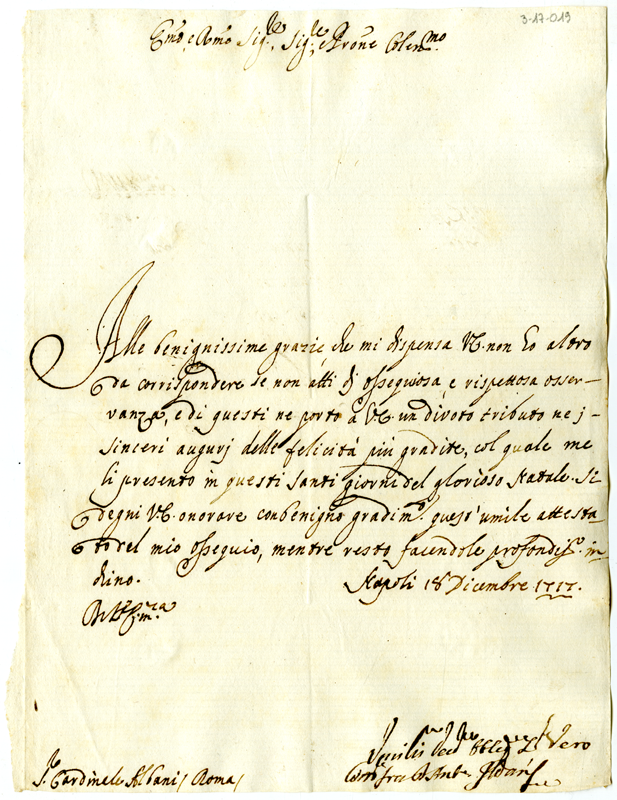 3-17-019
Emo e Rmo Sig.re, Sig.re e Prone Colenmo
Alle benignissime grazie che mi dispensa VE. non ho altro
da corrispondere se non atti di ossequiosa, e rispettosa osser-
vanza, e di questi ne porto à VE. un divoto tributo ne j
sinceri augurj delle felicità più gradite, col quale me
li presento in questi santi giorni del glorioso Natale. Si
degni VE. onorare con benigno gradim.to quest'umile attesta-
to del mio ossequio, mentre resto facendole profondiss.o in-
chino.
Napoli 18 Dicembre 1717.
Di VE
S.r Cardinale Albani / Roma /
Umilis Dev Obblig Vero